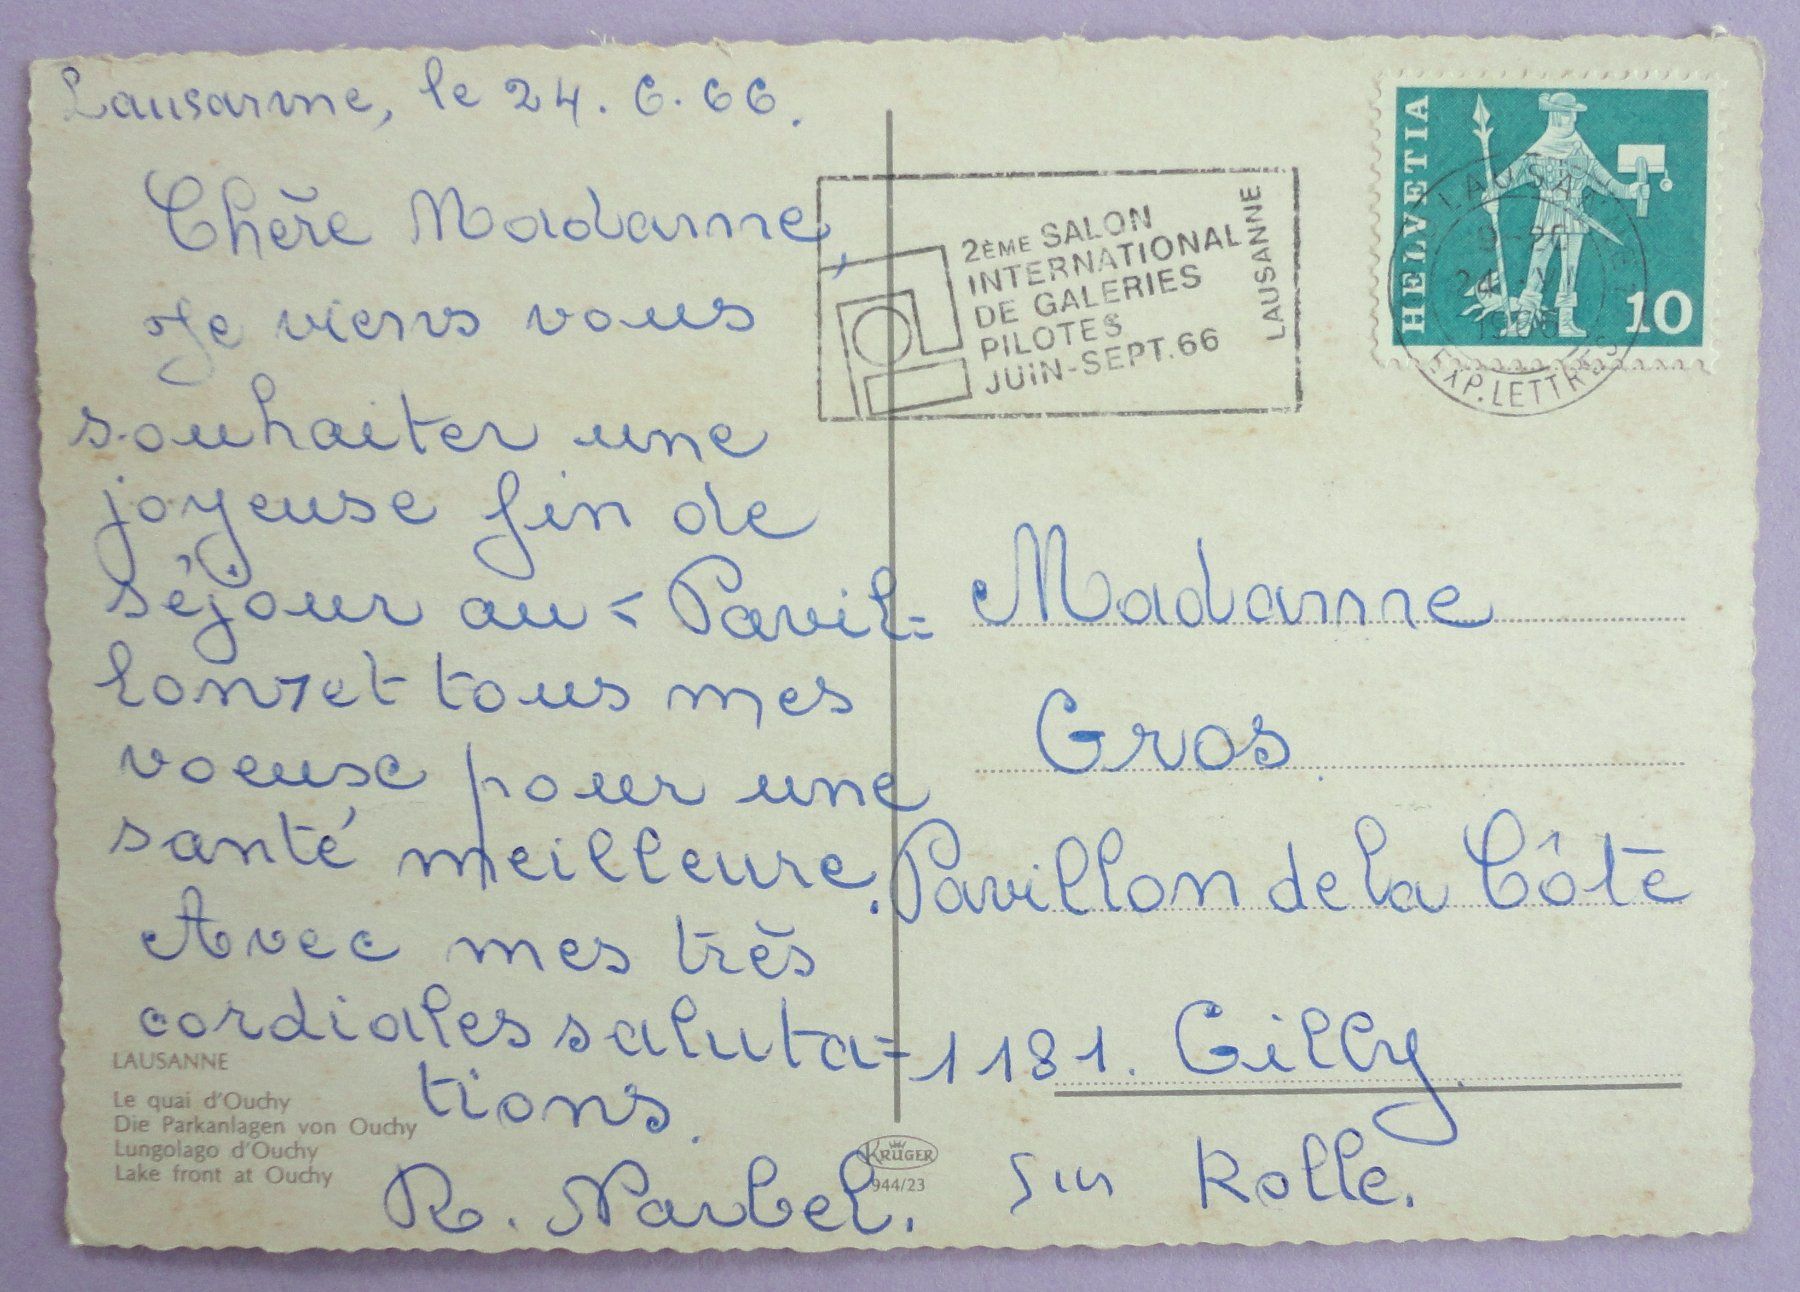 Lausanne, le 24. 6. 66.
Chère Madame,
Je viens vous
souhaiter une
joyeuse fin de
séjour au < Pavil=
lon > et tous mes
voeux pour une
santé meilleure.
Avec mes très
cordiales saluta=
tions.
R. Narbel.
LAUSANNE
Le quai d'Ouchy
Die Parkanlagen von Ouchy
Lungolago d'Ouchy
Lake front at Ouchy
KRÜGER
944/23
2ÈME SALON
INTERNATIONAL
DE GALERIES
PILOTES
JUIN-SEPT. 66
LAUSANNE
HELVETIA
10
LAUSANNE
24
1966
EXP. LETTRES
Madame
Gros.
Pavillon de la Côte
1181. Gilly.
sur Rolle.